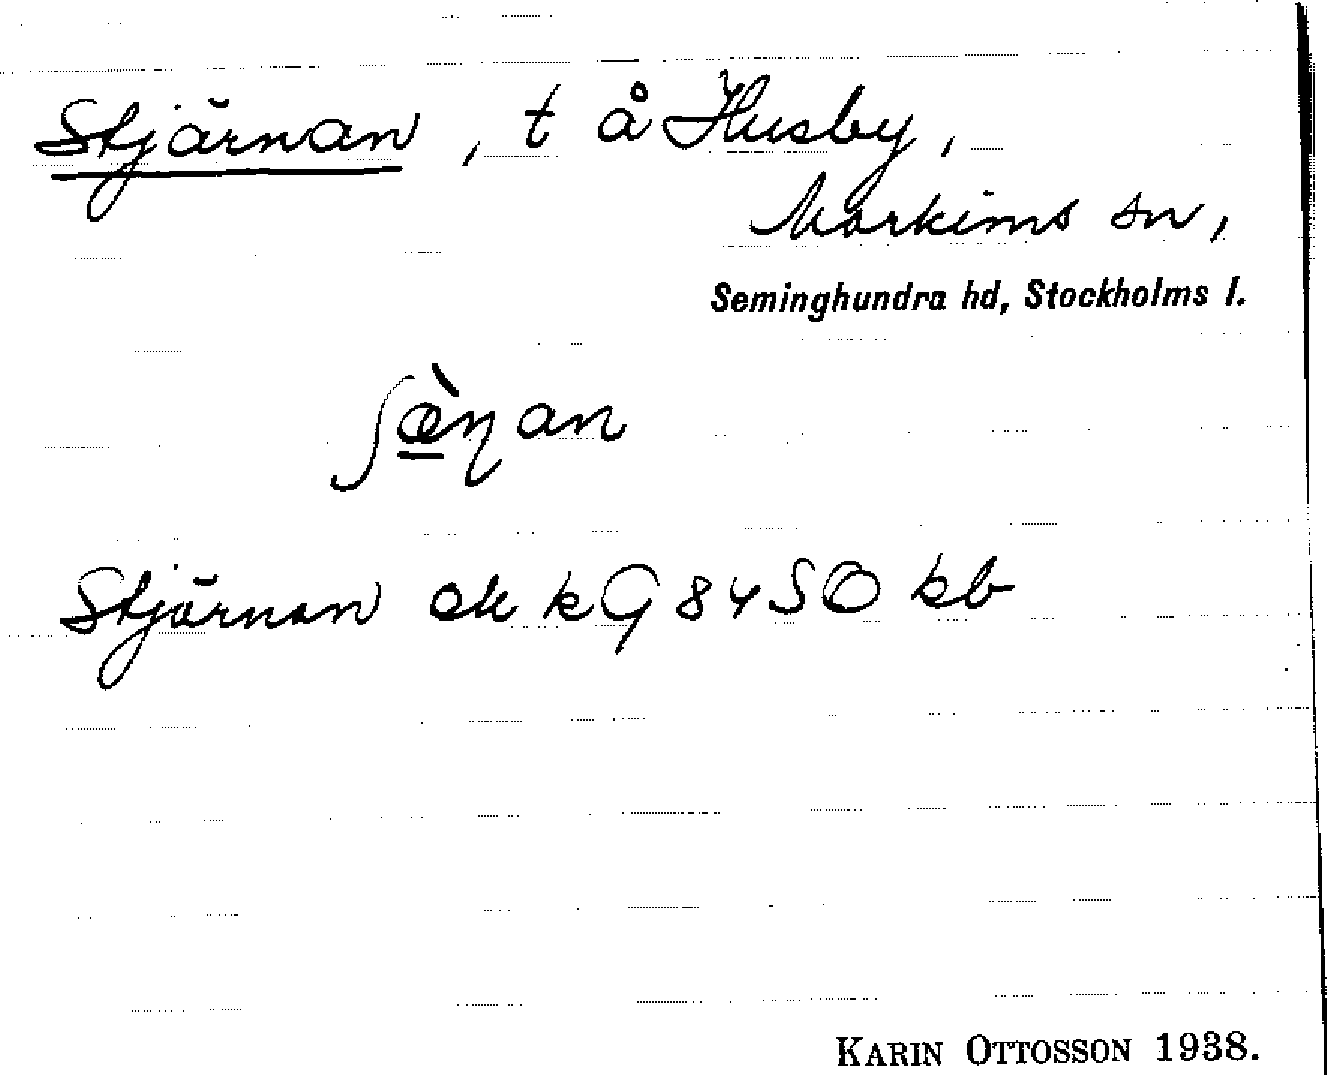 Stjärnan, t å Husby,
Markims sn,
Seminghundra hd, Stockholms l.
ʃæ̀ɳan
Stjärnan ek kG 84 SO kb
KARIN OTTOSSON 1938.